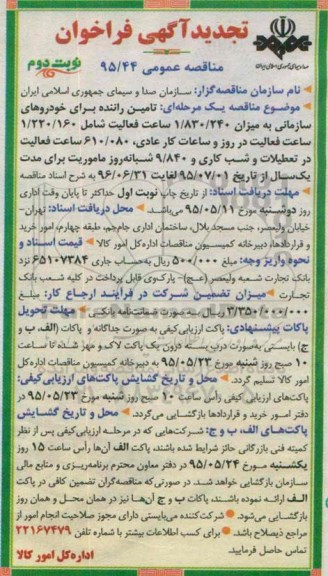 تجدیدآگهی فراخوان
مناقصه عمومی ۹۵/۴۴
نوبت دوم
نام سازمان مناقصه‌گزار: سازمان صدا و سیمای جمهوری اسلامی ایران
موضوع مناقصه یک مرحله‌ای: تامین راننده برای خودروهای
سازمانی به میزان ۱/۸۳۰/۲۴۰ ساعت فعالیت شامل ۱/۲۲۰/۱۶۰
ساعت فعالیت در روز و ساعات کار عادی، ۶۱۰/۰۸۰ ساعت فعالیت
در تعطیلات و شب کاری و ۹/۸۴۰ شبانه‌روز ماموریت برای مدت
یک‌سال از تاریخ ۹۵/۰۷/۰۱ لغایت ۹۶/۰۶/۳۱ به شرح اسناد مناقصه
مهلت دریافت اسناد: از تاریخ چاپ نوبت اول حداکثر تا پایان وقت اداری
روز دوشنبه مورخ ۹۵/۰۵/۱۱ می‌باشد. محل دریافت اسناد: تهران-
خیابان ولیعصر، جنب مسجد بلال، ساختمان اداری جام‌جم، طبقه چهارم، امور خرید
و قراردادها، دبیرخانه کمیسیون مناقصات اداره‌کل امور کالا قیمت اسناد و
نحوه واریز وجه: مبلغ ۵۰۰/۰۰۰ ریال به‌حساب جاری ۶۵۱۰۷۳۸۴ نزد
بانک تجارت شعبه ولیعصر (عج)- پارک‌وی قابل پرداخت در کلیه شعب بانک
تجارت میزان تضمین شرکت در فرآیند ارجاع کار: مبلغ
۳/۳۵۰/۰۰۰/۰۰۰ ریال به‌صورت ضمانت‌نامه بانکی مهلت تحویل
پاکات پیشنهادی: پاکت ارزیابی کیفی به صورت جداگانه و پاکات (الف، ب و
ج) بایستی به‌صورت دربسته درون یک پاکت لاک و مهر شده تا ساعت
۱۰ صبح روز شنبه مورخ ۹۵/۰۵/۲۳ به دبیرخانه کمیسیون مناقصات اداره‌کل
امور کالا تسلیم گردد محل و تاریخ گشایش پاکت‌های ارزیابی‌کیفی:
پاکت‌های ارزیابی کیفی رأس ساعت ۱۰ صبح روز شنبه مورخ ۹۵/۰۵/۲۳ در
دفتر امور خرید و قراردادها بازگشایی می‌گردد محل و تاریخ گشایش
پاکت‌های الف، ب و ج: شرکت‌هایی که در مرحله ارزیابی‌کیفی پس از نظر
کمیته فنی بازرگانی حائز شرایط شده باشند، پاکت الف آن‌ها رأس ساعت ۱۵ روز
یکشنبه مورخ ۹۵/۰۵/۲۴ در دفتر معاون محترم برنامه‌ریزی و منابع مالی
سازمان بازگشایی خواهد شد. در صورتی‌که مناقصه‌گران تضمین کافی در پاکت
الف ارائه نموده باشند، پاکات ب و ج آن‌ها نیز در همان محل و همان روز
بازگشایی می‌شود. شرکت‌کننده می‌بایستی دارای مجوز صلاحیت انجام امور از
مراجع ذیصلاح باشد. برای کسب اطلاعات بیشتر با شماره تلفن ۲۲۱۶۷۴۷۹
تماس حاصل فرمایید.
اداره‌کل امور کالا